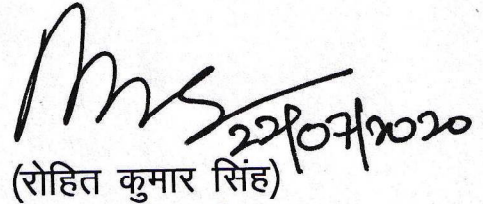 22/07/2020
(रोहित कुमार सिंह)